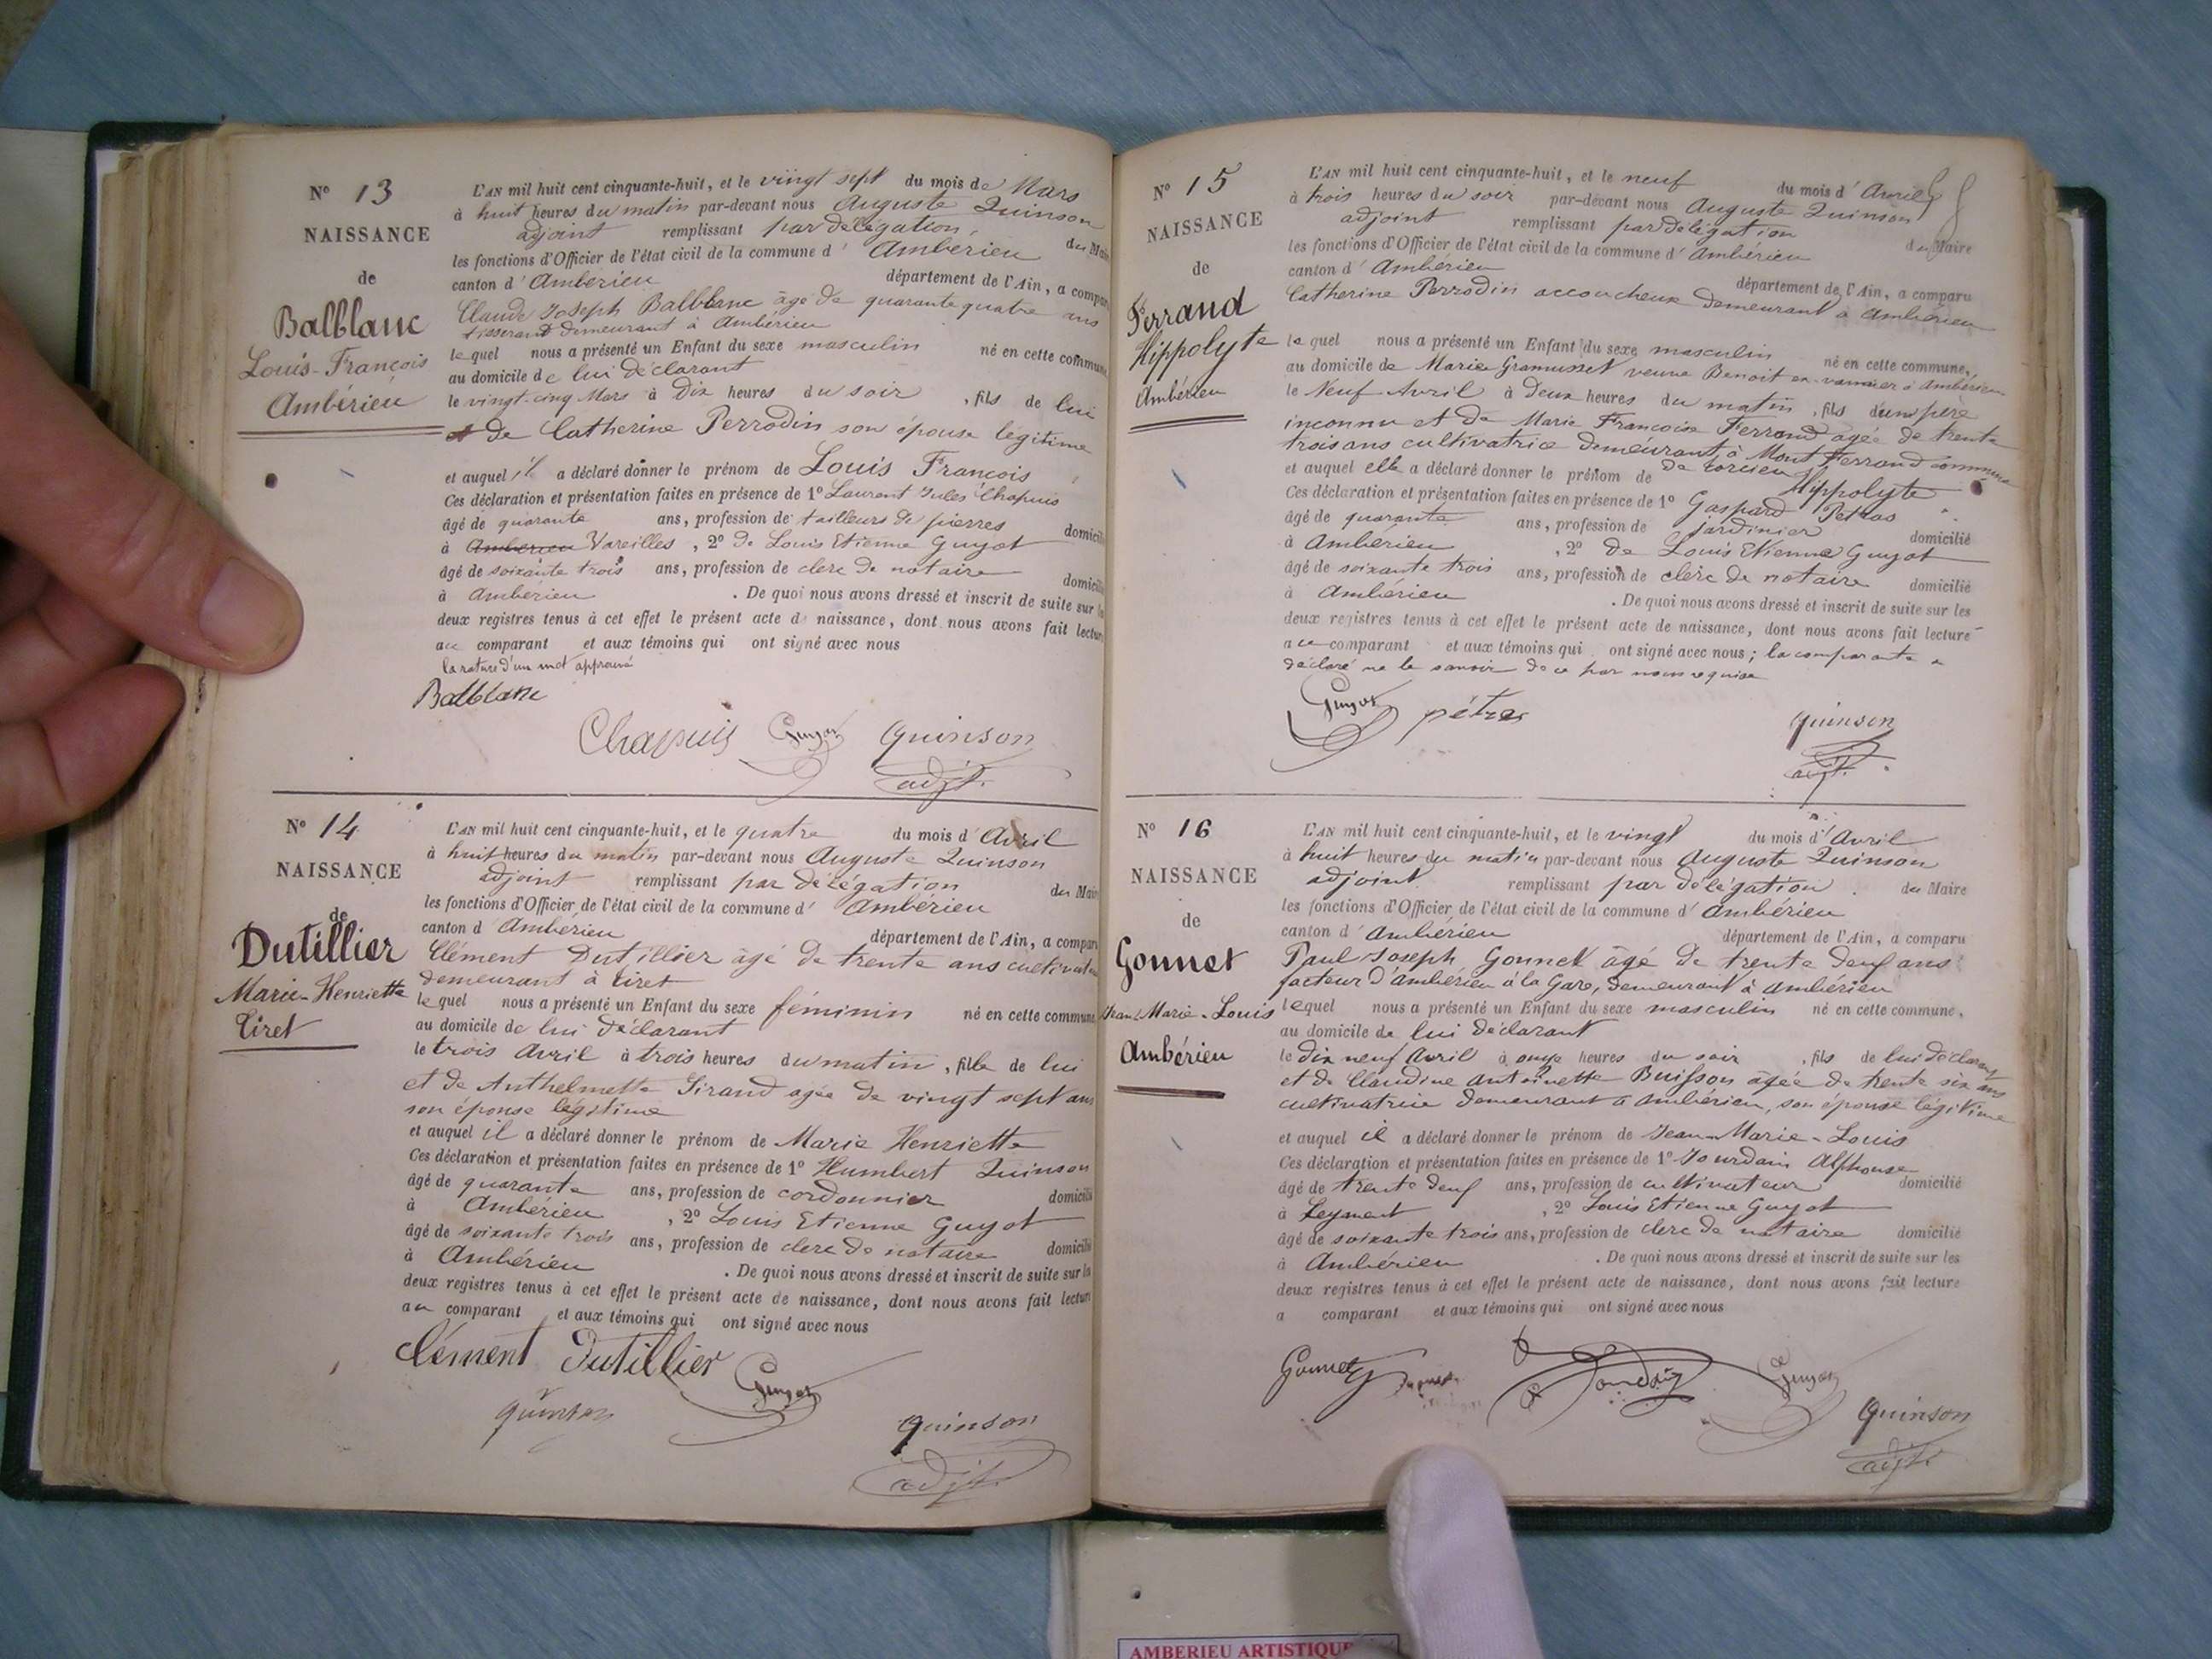 N° 13
NAISSANCE
de
Balblanc
Louis-François
Ambérieu
L'AN mil huit cent cinquante-huit, et le vingt sept du mois de Mars
à huit heures du matin par-devant nous Auguste Quinson
adjoint remplissant par délégation du Maire
les fonctions d'Officier de l'état civil de la commune d' Ambérieu
canton d' Ambérieu département de l'Ain, a comparu
Claude Joseph Balblanc âgé de quarante quatre ans
tisserand demeurant à Ambérieu
lequel nous a présenté un Enfant du sexe masculin né en cette commune
au domicile de lui déclarant
le vingt-cinq Mars à Dix heures du soir, fils de lui
et de Catherine Perrodin son épouse légitime
et auquel il a déclaré donner le prénom de Louis François
Ces déclaration et présentation faites en présence de 1° Laurent Jules Chapuis
âgé de quarante ans, profession de tailleurs de pierres domicilié
à Ambérieu Vareilles, 2° De Louis Etienne Guyot
âgé de soixante trois ans, profession de clerc de notaire domicilié
à Ambérieu. De quoi nous avons dressé et inscrit de suite sur les
deux registres tenus à cet effet le présent acte de naissance, dont nous avons fait lecture
au comparant et aux témoins qui ont signé avec nous
la rature d'un mot approuvé
Balblanc
Chapuis Guyot Quinson
adjt.
N° 14
NAISSANCE
de
Dutillier
Marie-Henriette
Tiret
L'AN mil huit cent cinquante-huit, et le quatre du mois d' Avril
à huit heures du matin par-devant nous Auguste Quinson
adjoint remplissant par délégation du Maire
les fonctions d'Officier de l'état civil de la commune d' Ambérieu
canton d' Ambérieu département de l'Ain, a comparu
Clément Dutillier âgé de trente ans cultivateur
demeurant à Tiret
lequel nous a présenté un Enfant du sexe féminin né en cette commune
au domicile de lui déclarant
le trois Avril à trois heures du matin, fille de lui
et de Anthelmette Sirand agée de vingt sept ans
son épouse légitime
et auquel il a déclaré donner le prénom de Marie Henriette
Ces déclaration et présentation faites en présence de 1° Humbert Quinson
âgé de quarante ans, profession de cordonnier domicilié
à Ambérieu, 2° Louis Etienne Guyot
âgé de soixante trois ans, profession de clerc de notaire domicilié
à Ambérieu. De quoi nous avons dressé et inscrit de suite sur les
deux registres tenus à cet effet le présent acte de naissance, dont nous avons fait lecture
au comparant et aux témoins qui ont signé avec nous
Clément Dutillier Guyot
Quinson
Quinson
adjt.
N° 15
NAISSANCE
de
Ferrand
Hippolyte
Ambérieu
L'AN mil huit cent cinquante-huit, et le neuf du mois d' Avril
à trois heures du soir par-devant nous Auguste Quinson
adjoint remplissant par délégation du Maire
les fonctions d'Officier de l'état civil de la commune d' Ambérieu
canton d' Ambérieu département de l'Ain, a comparu
Catherine Perrodin accoucheuse demeurant à Ambérieu
lequel nous a présenté un Enfant du sexe masculin né en cette commune,
au domicile de Marie Gramusset veuve Benoit à Ambérieu
le Neuf Avril à Deux heures du matin, fils d'un père
inconnu et de Marie Francoise Ferrand agée de trente
trois ans cultivatrice demeurant à Mont Ferrand commune
de torcieu
et auquel elle a déclaré donner le prénom de Hippolyte
Ces déclaration et présentation faites en présence de 1° Gaspard Pétras
âgé de quarante ans, profession de jardinier domicilié
à Ambérieu, 2° de Louis Etienne Guyot
âgé de soixante trois ans, profession de clerc de notaire domicilié
à Ambérieu. De quoi nous avons dressé et inscrit de suite sur les
deux registres tenus à cet effet le présent acte de naissance, dont nous avons fait lecture
au comparant et aux témoins qui ont signé avec nous; la comparante a
déclaré ne le savoir de ce par nous requise
Guyot pétras Quinson
adjt.
N° 16
NAISSANCE
de
Gonnet
Jean-Marie-Louis
Ambérieu
L'AN mil huit cent cinquante-huit, et le vingt du mois d' Avril
à huit heures du matin par-devant nous Auguste Quinson
adjoint remplissant par délégation du Maire
les fonctions d'Officier de l'état civil de la commune d' Ambérieu
canton d' Ambérieu département de l'Ain, a comparu
Paul Joseph Gonnet âgé de trente deux ans
facteur d'ambérieu à la Gare, demeurant à ambérieu
lequel nous a présenté un Enfant du sexe masculin né en cette commune,
au domicile de lui déclarant
le dix neuf Avril à onze heures du soir, fils de lui déclarant
et de Claudine antoinette Buisson âgée de trente six ans
cultivatrice demeurant à ambérieu, son épouse légitime
et auquel il a déclaré donner le prénom de Jean-Marie-Louis
Ces déclaration et présentation faites en présence de 1° Jourdain Alphonse
âgé de trente deux ans, profession de cultivateur domicilié
à Leyment, 2° Louis Etienne Guyot
âgé de soixante trois ans, profession de clerc de notaire domicilié
à Ambérieu. De quoi nous avons dressé et inscrit de suite sur les
deux registres tenus à cet effet le présent acte de naissance, dont nous avons fait lecture
a comparant et aux témoins qui ont signé avec nous
Gonnet Guyot
Quinson
adjt.
AMBERIEU ARTISTIQUE